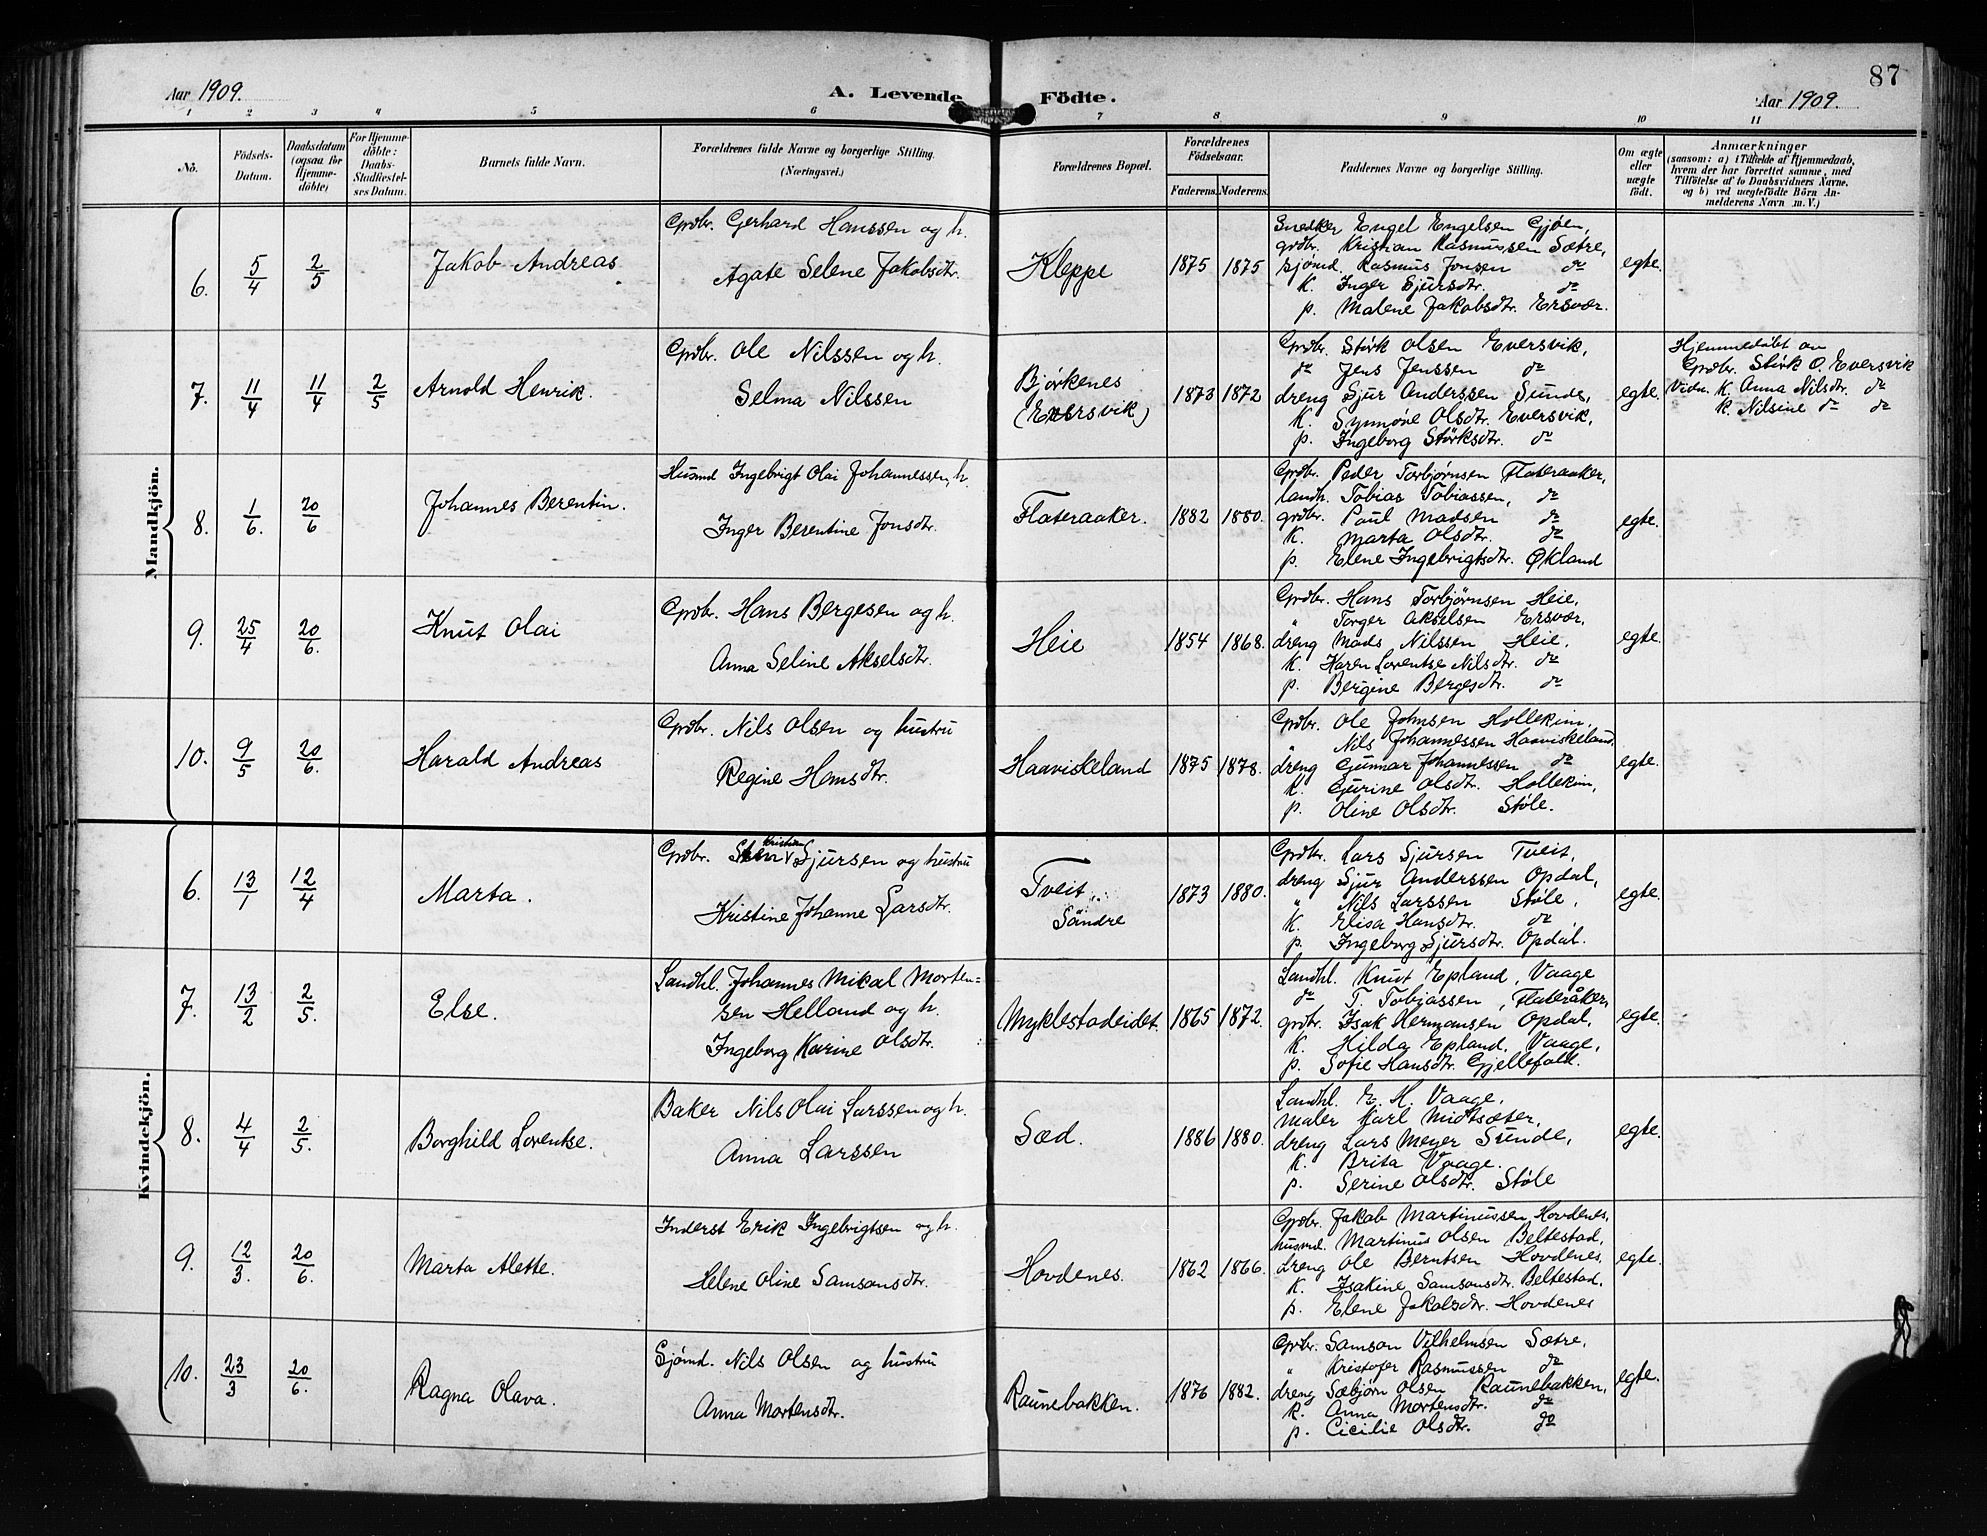 87
Aar 1909. A. Levende Födte. Aar 1909.
1 2 3 4 5 6 7 8 9 10 11
No.
Födsels-
Datum.
Daabsdatum
(ogsaa for
Hjemme-
döbte)
For Hjemme-
döbte:
Daabs-
Stadfæstel-
ses Datum.
Barnets fulde Navn.
Forældrenes fulde Navne og borgerlige Stilling.
(Næringsvei.)
Forældrenes Bopæl.
Forældrenes
Födselsaar.
Faderens. Moderens.
Faddernes Navne og borgerlige Stilling.
Om ægte
eller
uægte
födt.
Anmærkninger
(saasom: a) i Tilfælde af Hjemmedaab,
hvem der har forrettet samme, med
Tilföielse af to Daabsvidners Navne,
og b) ved uægtefödte Börn An-
melderens Navn m. V.)
Mandkjön.
6. 5/4 2/5 Jakob Andreas
Grdbr. Gerhard Hanssen og h.
Agate Selene Jakobsdtr.
Kleppe 1875 1875
Snedker Engel Engelsen Gjøen,
grdbr. Kristian Rasmussen Sætre,
sjømd. Rasmus Jonsen do
K. Inger Sjursdtr. do
p. Malene Jakobsdtr. Ersvær.
egte.
7. 11/4 11/4 2/5 Arnold Henrik.
Grdbr. Ole Nilssen og h.
Selma Nilssen
Bjørkenes
(Eversvik)
1873 1872
Grdbr. Størk Olsen Eversvik,
do Jens Jenssen do
dreng Sjur Anderssen Sunde,
K. Synnøve Olsdtr. Eversvik,
p. Ingeborg Størksdtr. do
egte.
Hjemmedøbt av
Grdbr. Størk O. Eversvik
Vidn. K. Anna Nilsdtr. do
K. Nilsine do do
8. 1/6. 20/6 Johannes Berentin.
Husmd Ingebrigt Olai Johannessen, h.
Inger Berentine Jonsdtr.
Flateraaker. 1882 1880.
Grdbr. Peder Torbjørnsen Flateraaker,
landh. Tobias Tobiassen, do
grdbr. Paul Madsen do
K. Marta Olsdtr. do
p. Elene Ingebrigtsdtr. Økland
egte.
9. 25/4 20/6. Knut Olai
Grdbr. Hans Bergesen og h.
Anna Seline Akselsdtr.
Heie 1854 1868.
Grdbr. Hans Torbjørnsen Heie,
" Torger Akselsen Ersvær,
dreng Mads Nilssen Heie,
K. Karen Lorentse Nilsdtr. do
p. Bergine Bergesdtr. do
egte.
10. 9/5 20/6. Harald Andreas
Grdbr. Nils Olsen og hustru
Regine Hansdtr.
Haaviskeland 1875 1878.
Grdbr. Ole Johnsen Hollekim,
" Nils Johannessen Haaviskeland,
dreng Gunnar Johannessen do
K. Gurine Olsdtr. Hollekim,
p. Oline Olsdtr. Støle.
egte.
Kvindekjön.
6. 13/1 12/4 Marta.
Kristian
Grdbr. Sjursen og hustru
Kristine Johanne Larsdtr.
Tveit
Søndre
1873 1880.
Grdbr. Lars Sjursen Tveit,
dreng Sjur Anderssen Opdal,
" Nils Larssen Støle,
K. Elisa Hansdtr. do
p. Ingeborg Sjursdtr. Opdal.
egte.
7. 13/2 2/5. Else.
Landhl. Johannes Mikal Morten-
sen Helland og h.
Ingeborg Karine Olsdtr.
Myklestadeidet. 1865 1872.
Landhl. Knut Epland, Vaage
do T. Tobiassen, Flateråker,
grdbr. Isak Hermansen Opdal,
K. Hilda Epland, Vaage,
p. Sofie Hansdtr. Gjellefald.
egte.
8. 4/4 2/5. Borghild Lorentse.
Baker Nils Olai Larssen og h.
Anna Larssen
Sæd. 1886 1880.
Landhl. E. H. Vaage,
maler Karl Midtsæter,
dreng Lars Meyer Sunde,
K. Brita Vaage.
p. Serine Olsdtr. Støle
egte.
9. 12/3. 20/6. Marta Alette.
Inderst Erik Ingebrigtsen og h.
Helene Oline Samsonsdtr.
Hovdenes. 1862 1866.
Grdbr. Jakob Martinussen Hovdenes,
husmd. Martinus Olsen Beltestad,
dreng Ole Berntsen Hovdenes,
K. Isakine Samsonsdtr. Beltestad,
p. Elene Jakobsdtr. Hovdenes
egte.
10. 23/3 20/6. Ragna Olava.
Sjømd. Nils Olsen og hustru
Anna Mortensdtr.
Raunebakken. 1876 1882.
Grdbr. Samson Vilhelmsen Sætre,
" Kristofer Rasmussen do
dreng Sæbjørn Olsen Raunebakken,
K. Anna Mortensdtr. do
p. Cicilie Olsdtr. do
egte.